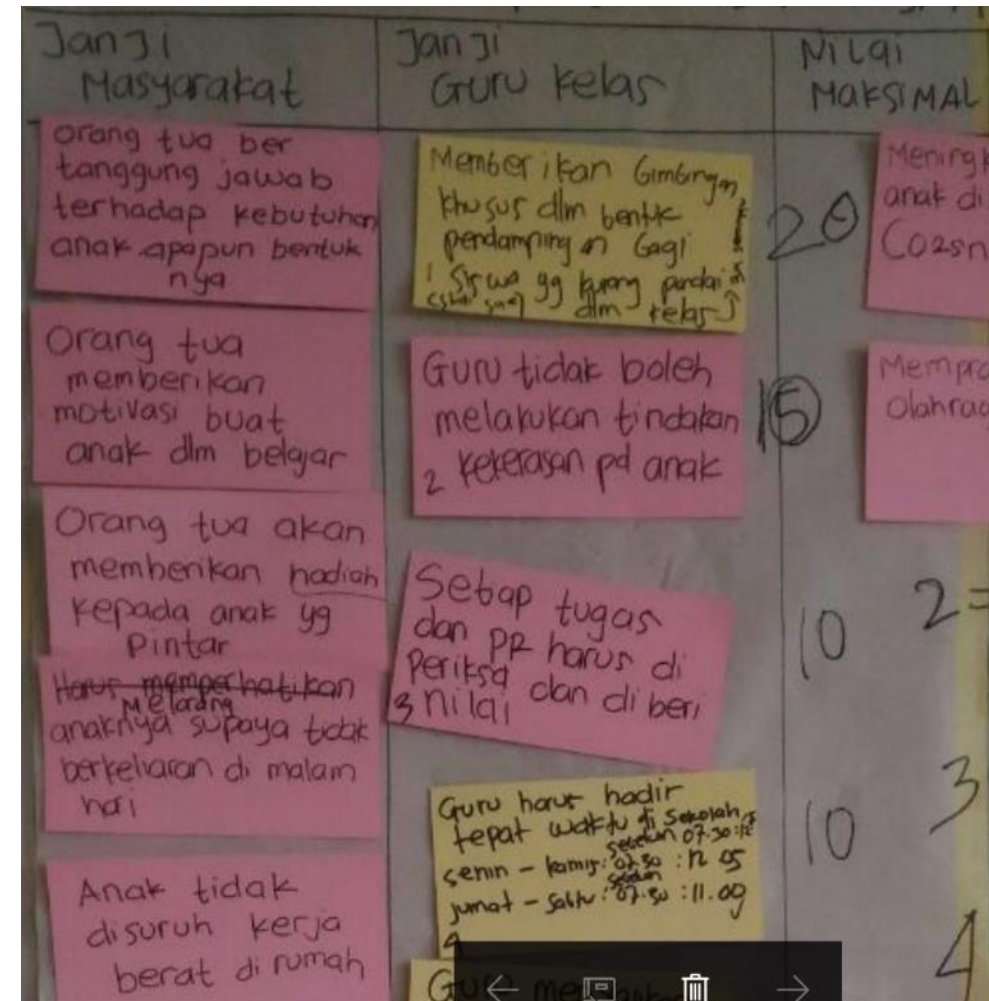 Janji
Masyarakat
orang tua ber
tanggung jawab
terhadap kebutuhan
anak apapun bentuk
nya
Orang tua
memberikan
motivasi buat
anak dlm belajar
Orang tua akan
memberikan hadiah
kepada anak yg
Pintar
Harus memperhatikan
Melarang
anaknya supaya tidak
berkeliaran di malam
hari
Anak tidak
disuruh kerja
berat di rumah
Janji
Guru kelas
Memberikan bimbingan
khusus dlm bentuk
pendampingan bagi
1 siswa yg kurang pandai
dlm kelas
Guru tidak boleh
melakukan tindakan
2 kekerasan pd anak
Setiap tugas
dan PR harus di
Periksa dan di beri
3 nilai
Guru harus hadir
tepat waktu di sekolah
sebelum 07.30
senin - kamis: 07.30 : 12 05
jumat - Sabtu: 07.30 : 11.09
4
Nilai
MAKSIMAL
20
15
10
10
anak di
Olahrag
2 =
3
4